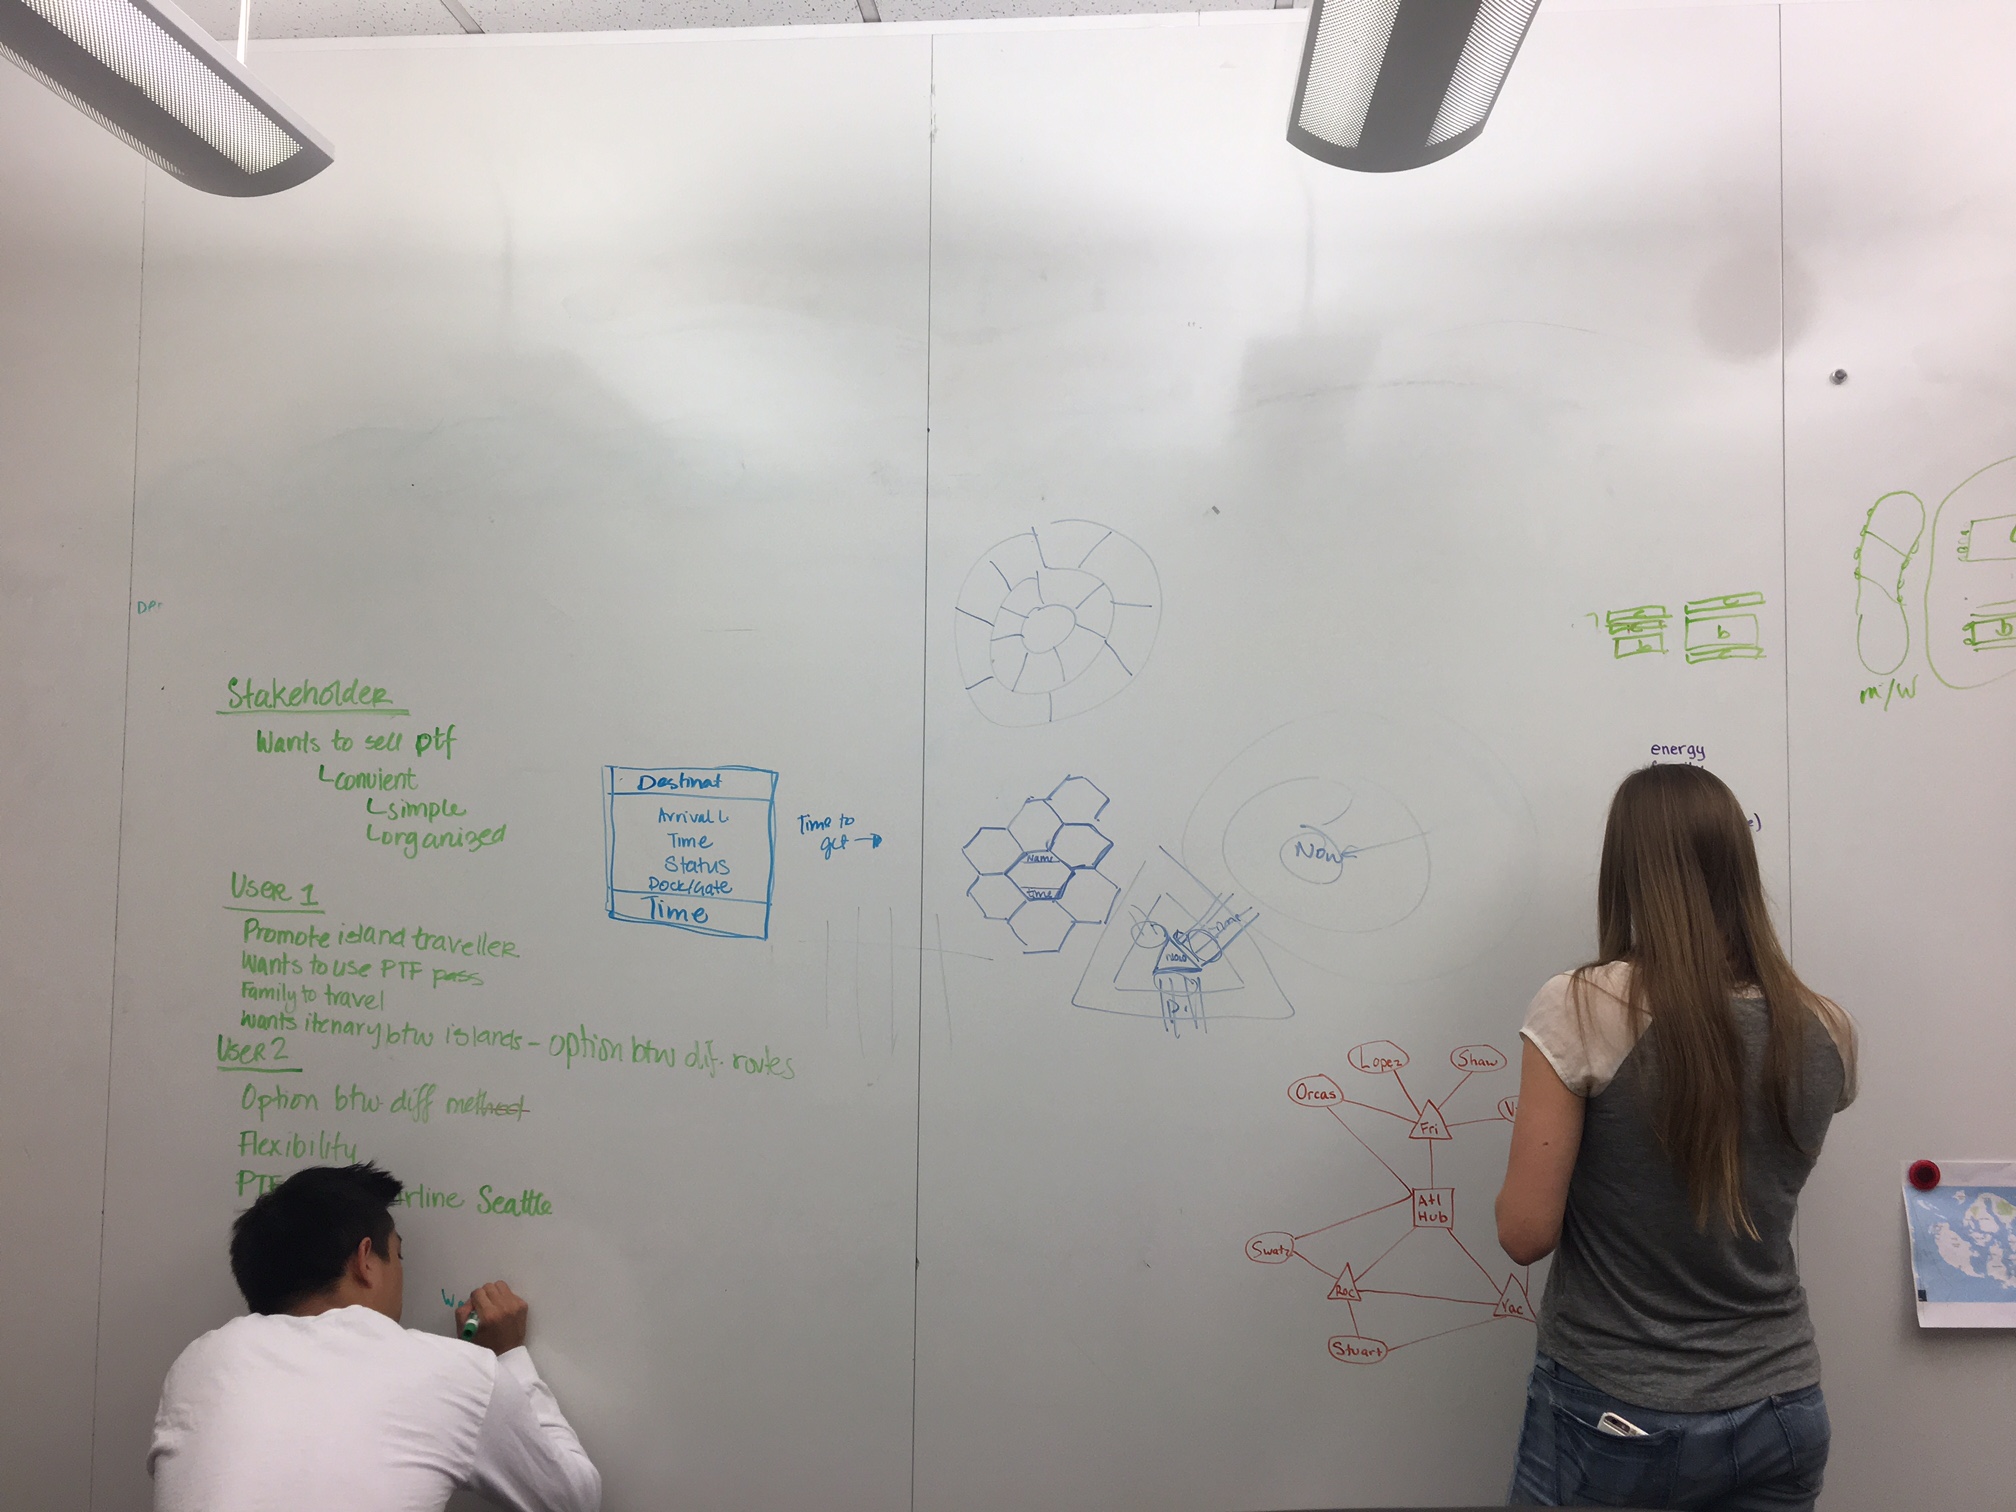 Stakeholder
Wants to sell ptf
convient
simple
organized
User 1
Promote island traveller
Wants to use PTF pass
Family to travel
Wants itenary btw islands - option btw dif. routes
User 2
Option btw diff method
Flexibility
Seattle
Destinat
Arrival L
Time
Status
Dock/Gate
Time
Time to
get →
Name
Time
Now
Now
b
b
m/W
energy
Lopez
Shaw
Orcas
Fri
Atl
Hub
Swatz
Roc
Vac
Stuart